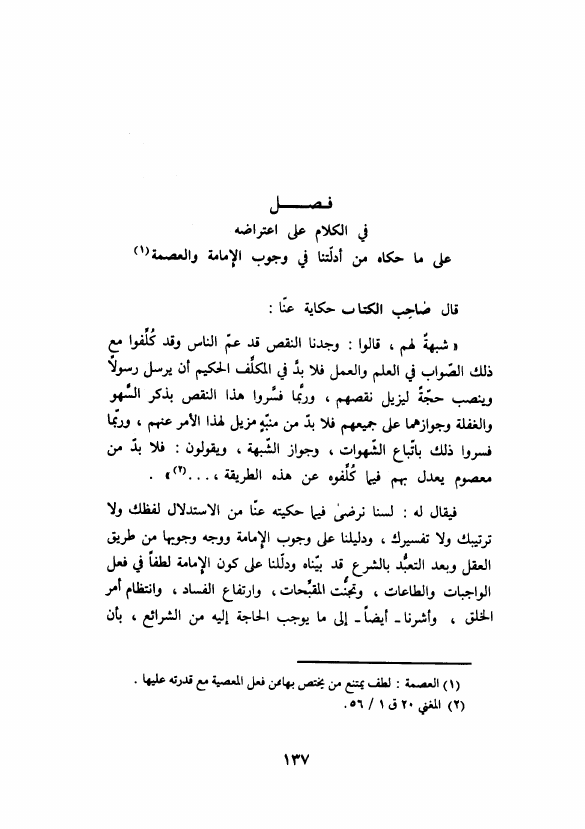 فـصـــــل
في الكلام على اعتراضه
على ما حكاه من أدلّتنا في وجوب الإمامة والعصمة (١)
قال صاحب الكتاب حكاية عنّا :
« شبهةٌ لهم ، قالوا : وجدنا النقص قد عمّ الناس وقد كُلِّفوا مع
ذلك الصّواب في العلم والعمل فلا بدَّ في المكلِّف الحكيم أن يرسل رسولاً
وينصب حجّةً ليزيل نقصهم ، وربّما فسَّروا هذا النقص بذكر السَّهو
والغفلة وجوازهما على جميعهم فلا بدّ من منبّهٍ مزيل لهذا الأمر عنهم ، وربّما
فسروا ذلك باتّباع الشّهوات ، وجواز الشّبهة ، ويقولون : فلا بدّ من
معصوم يعدل بهم فيما كُلِّفوه عن هذه الطريقة ، ... (٢) » .
فيقال له : لسنا نرضىٰ فيما حكيته عنّا من الاستدلال لفظك ولا
ترتيبك ولا تفسيرك ، ودليلنا على وجوب الإمامة ووجه وجوبها من طريق
العقل وبعد التعبُّد بالشرع قد بيّناه ودلّلنا على كون الإمامة لطفاً في فعل
الواجبات والطاعات ، وتجنُّت المقبِّحات ، وارتفاع الفساد ، وانتظام أمر
الخلق ، وأشرنا ـ أيضاً ـ إلى ما يوجب الحاجة إليه من الشرائع ، بأن
(١) العصمة : لطف يمتنع من يختص بهاعن فعل المعصية مع قدرته عليها .
(٢) المغني ٢٠ ق ١ / ٥٦ .
١٣٧